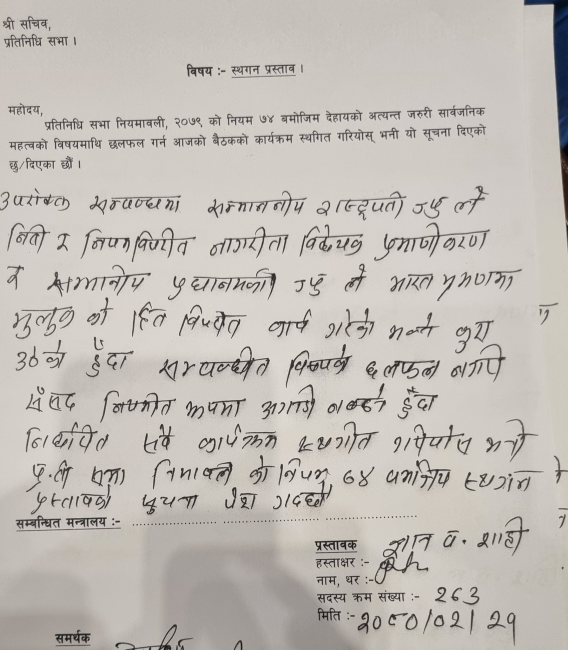 श्री सचिव,
प्रतिनिधि सभा ।
विषय :- स्थगन प्रस्ताव ।
महोदय,
प्रतिनिधि सभा नियमावली, २०७९ को नियम ७४ बमोजिम देहायको अत्यन्त जरुरी सार्वजनिक
महत्वको विषयमाथि छलफल गर्न आजको बैठकको कार्यक्रम स्थगित गरियोस् भनी यो सूचना दिएको
छु/दिएका छौं ।
उपरोक्त सम्वन्धमा सम्माननीय राष्ट्रपती ज्यु ले
निती र नियमविपरीत नागरीता विधेयक प्रमाणीकरण
र सम्मानीय प्रधानमन्त्री ज्यु ले भारत भ्रमणमा
मुलुक को हित विपरीत कार्य गरेको भन्ने कुरा
उठेको हुँदा सम्वन्धीत विषयको छलफल नगरी
संसद नियमीत रूपमा अगाडी नबढ्ने हुँदा
निर्धारित सवै कार्यक्रम स्थगीत गरियोस भनी
प्र.नी सभा नियमावली को नियम ७४ वमोजिम स्थगन
प्रस्तावको सुचना पेश गर्दछौ
सम्बन्धित मन्त्रालय :- ........................................
प्रस्तावक ज्ञान व. शाही
हस्ताक्षर :-
नाम, थर :-
सदस्य क्रम संख्या :- 263
मिति :- २०८०/०२/२९
समर्थक